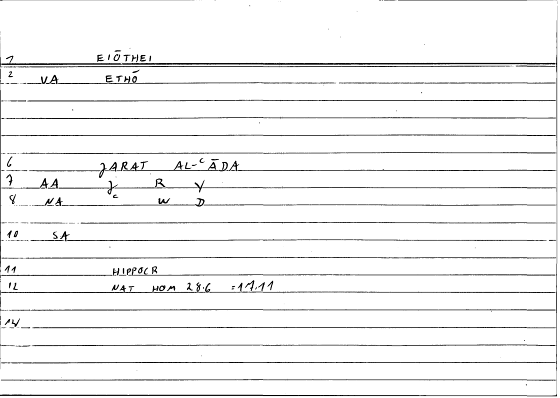 1 EIŌTHEI
2 VA ETHŌ
6 JARAT AL-ʿĀDA
7 AA J R Y
8 NA ʿ W D
10 SA
11 HIPPOCR
12 NAT HOM 28.6 =17.11
14